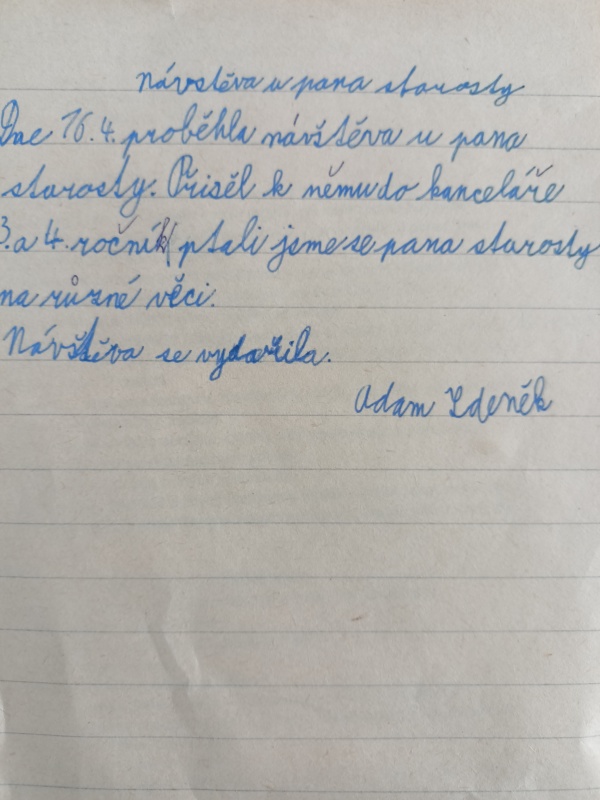 Návstěva u pana starosty
Dne 16. 4. proběhla návštěva u pana
starosty. Přisěl k němu do kanceláře
3. a 4. ročník ptali jsme se pana starosty
na různé věci.
Návštěva se vydařila.
Adam Zdeněk